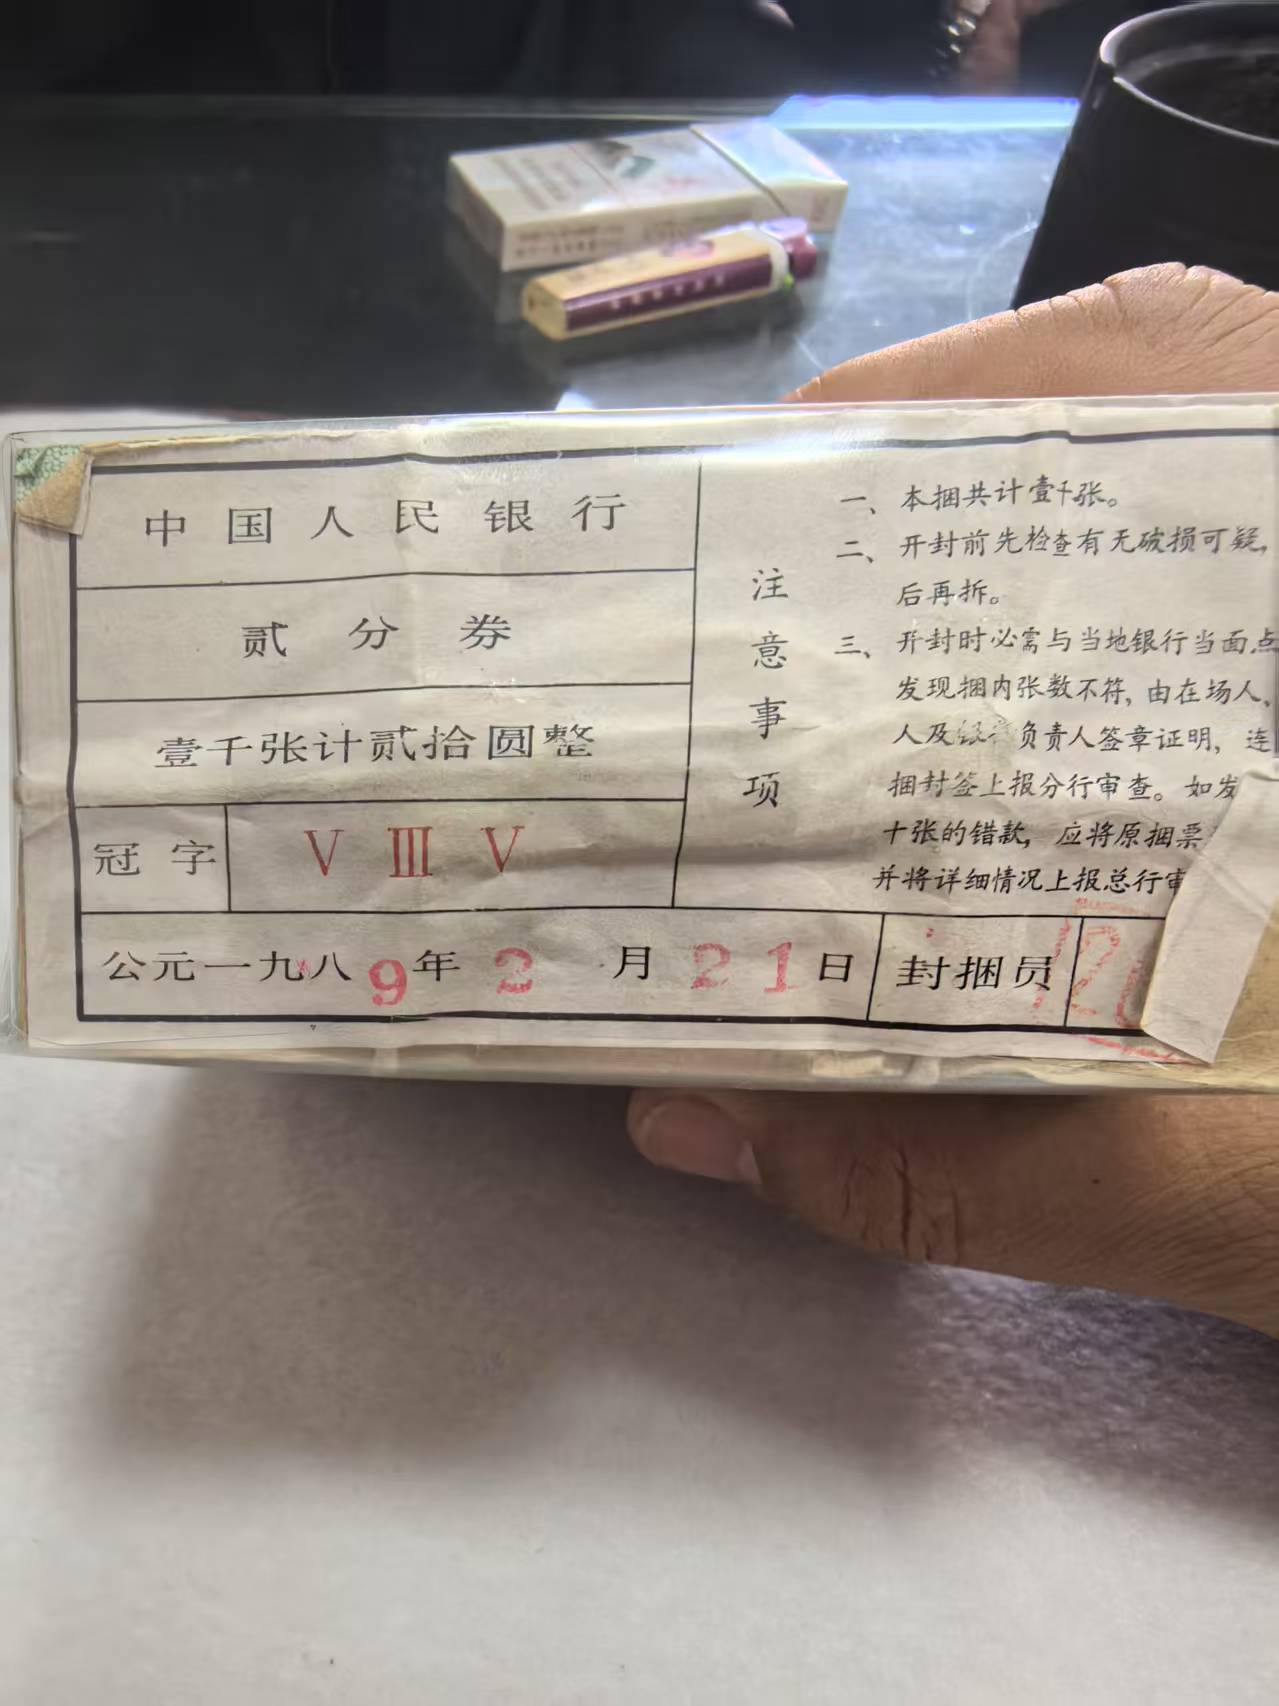 中国人民银行
贰分券
壹千张计贰拾圆整
冠字 V III V
公元一九八9年2月21日 封捆员
注意事项
一、本捆共计壹千张。
二、开封前先检查有无破损可疑,
后再拆。
三、开封时必需与当地银行当面点
发现捆内张数不符,由在场人、
人及银行负责人签章证明,连
捆封签上报分行审查。如发
十张的错款,应将原捆票
并将详细情况上报总行审